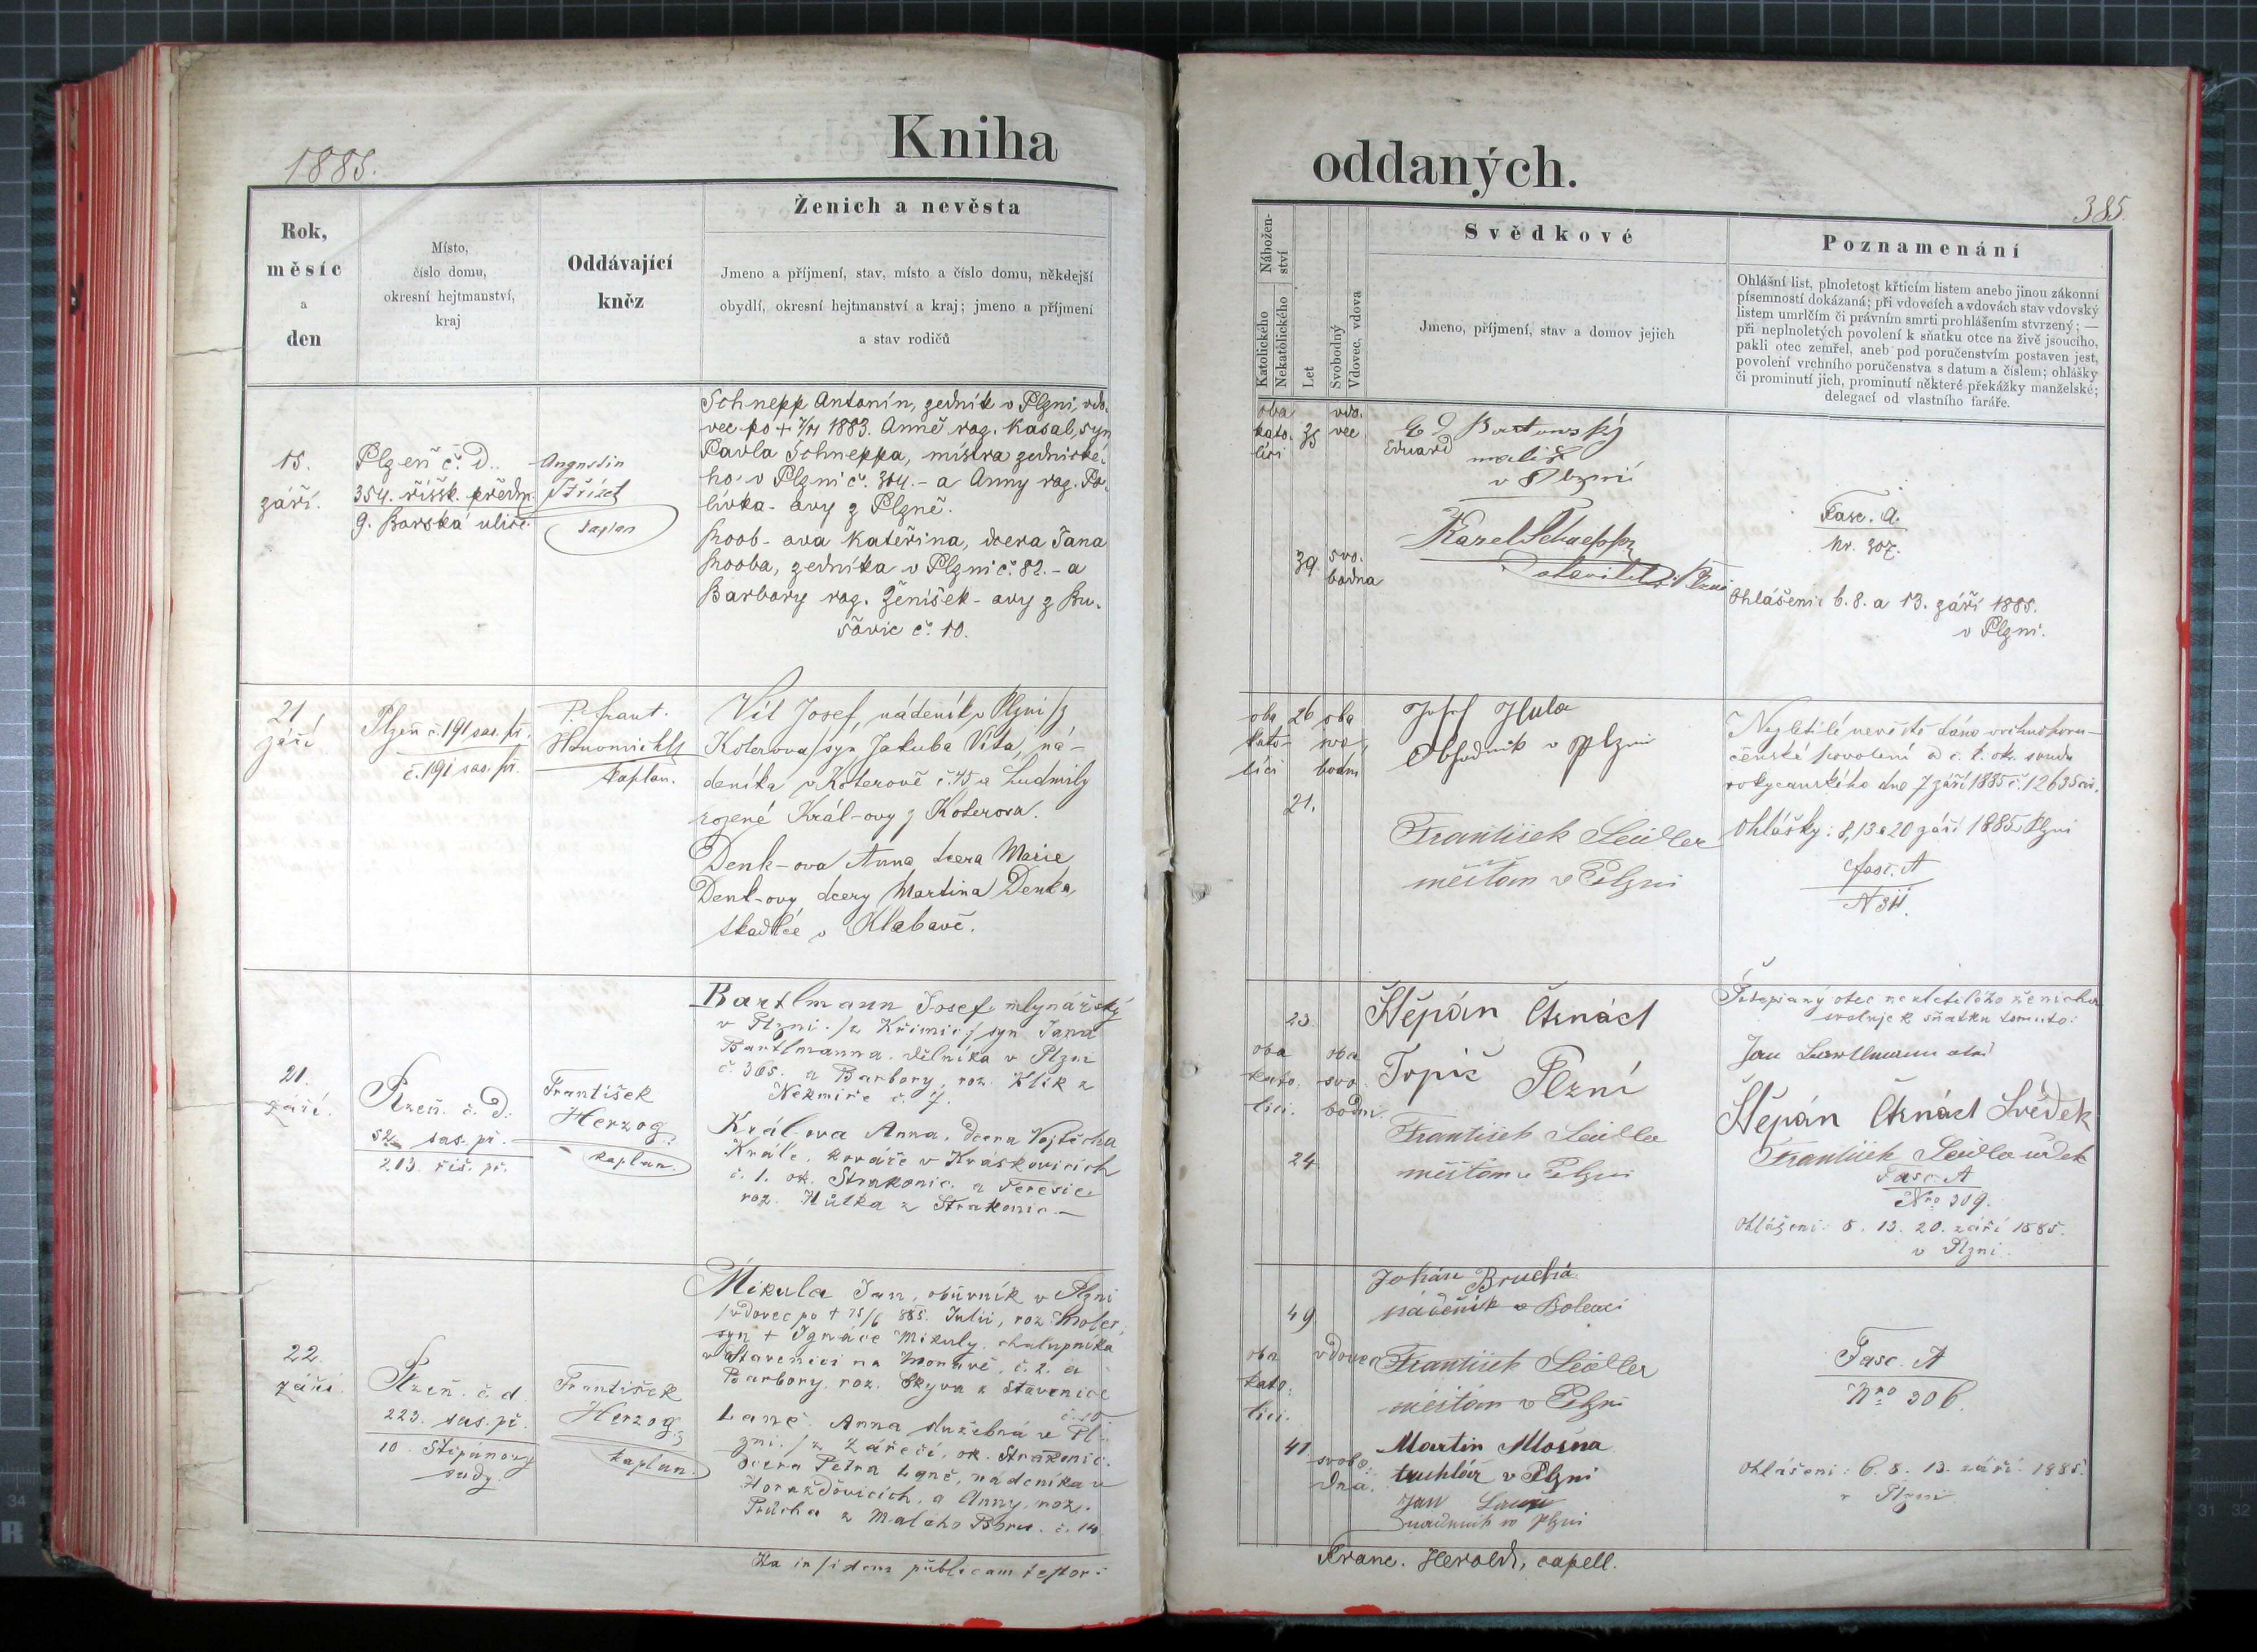 Kniha
1885.
Rok,
měsíc
a
den
Místo,
číslo domu,
okresní hejtmanství,
kraj
Oddávající
kněz
Ženich a nevěsta
Jmeno a příjmení, stav, místo a číslo domu, někdejší
obydlí, okresní hejtmanství a kraj; jmeno a příjmení
a stav rodičů
15.
září.
Plzeň č. d.
354. říšsk. předm.
9. Borská ulice
Augustin
Střízek
kaplan
Schnepp Antonín, zedník v Plzni, vdo-
vec po + 7/4 1883. Anně roz. Kasal, syn
Pavla Schneppa, mistra zednické-
ho v Plzni č. 304. - a Anny roz. Po-
lívka - ovy z Plzně.
- ova Kateřina, dcera Jana
zedníka v Plzni č. 82. - a
Barbory roz. Ženíšek - ovy z Bu-
šovic č. 10.
21
září
Plzeň č. 191 sas. př.
č. 191 sas. př.
P. Frant.
kaplan.
Vít Josef, nádeník v Plzni /z
Koterova/ syn Jakuba Víta, ná-
deníka v Koterově č. 45 a Ludmily
rozené Král-ovy z Koterova.
Denk-ova Anna dcera Marie
Denk-ovy, dcery Martina Denka
v Klabavě.
21.
září.
Plzeň. č. d.
52 sas. př.
213 říš. př.
František
Herzog
kaplan.
Bartlmann Josef mlynářský
v Plzni. /z Křimic/ syn Jana
Bartlmanna. dělníka v Plzni
č. 305. a Barbory, roz. Klik z
Nekmíře č. 7.
Král-ova Anna, dcera Vojtěcha
Krále, kováře v Kraskovicích
č. 1. ok. Strakonic. a Teresie
roz. Hůlka z Strakonic -
22.
září.
Plzeň. č. d.
223. sas. př.
10. Štěpánovy
sady.
František
Herzog
kaplan.
Mikula Jan, obuvník v Plzni
/vdovec po + 15/6 885. Julii, roz.
syn + Ignáce Mikuly, chalupníka
v Stavenici na Moravě, č. 2. a
Barbory, roz. Skyva z Stavenice
č. 10
Laně Anna služebná v Pl-
zni. /z Zářečí, ok. Strakonic.
dcera Petra Laně, nádeníka v
Horažďovicích, a Anny, roz.
Průcha z Malého Boru. č. 14
Ita in fidem publicam testor:
oddaných.
385.
Nábožen-
ství
Katolického
Nekatolického
Let
Svobodný
Vdovec, vdova
Svědkové
Jmeno, příjmení, stav a domov jejich
Poznamenání
Ohlášní list, plnoletost křticím listem anebo jinou zákonní
písemností dokázaná; při vdovcích a vdovách stav vdovský
listem umrlčím či právním smrti prohlášením stvrzený; —
při neplnoletých povolení k sňatku otce na živě jsoucího,
pakli otec zemřel, aneb pod poručenstvím postaven jest,
povolení vrchního poručenstva s datum a číslem; ohlášky
či prominutí jich, prominutí některé překážky manželské;
delegací od vlastního faráře.
oba
kato-
líci
35
vdo-
vec
39
svo-
bodna
Ed Bartovský
Eduard
malíř
v Plzni
Karel Schnepp
stavitel v Plzni
Fasc. A.
Nr. 307.
Ohlášeni: 6. 8. a 13. září 1885.
v Plzni.
oba
kato-
líci
26
oba
svo
bodni
21.
Josef Hula
Obchodník v Plzni
František Seidler
měšťan v Plzni
Nezletilé nevěstě dáno vrchnoporu-
čenské povolení od c. k. ok. soudu
rokycanského dne 7 září 1885 č. 12635 civ.
Ohlášky: 8, 13 a 20 září 1885 v Plzni
fasc. A
N 311.
23
oba
kato.
líci.
oba
svo.
bodni.
24
Štěpán Čtrnáct
Topič Plzní
František Seidler
měšťan v Plzni
Podepsaný otec nezletilého ženicha
svoluje k sňatku tomuto:
Jan Bartlmann otec
Štěpán Čtrnáct Svědek
František Seidler svědek
Fasc. A
Nro 309.
Ohlášeni: 8. 13. 20. září 1885.
v Plzni.
49
oba
kato.
líci.
vdovec
41
svobo-
dna.
Johan Bruchá
nádeník v Bolevci
František Seidler
měšťan v Plzni
Martin Mlosna
truhlář v Plzni
Jan
v Plzni
Fasc. A
Nro 306.
Ohlášeni: 6. 8. 13. září. 1885.
v Plzni
Franc. Herold, capell.